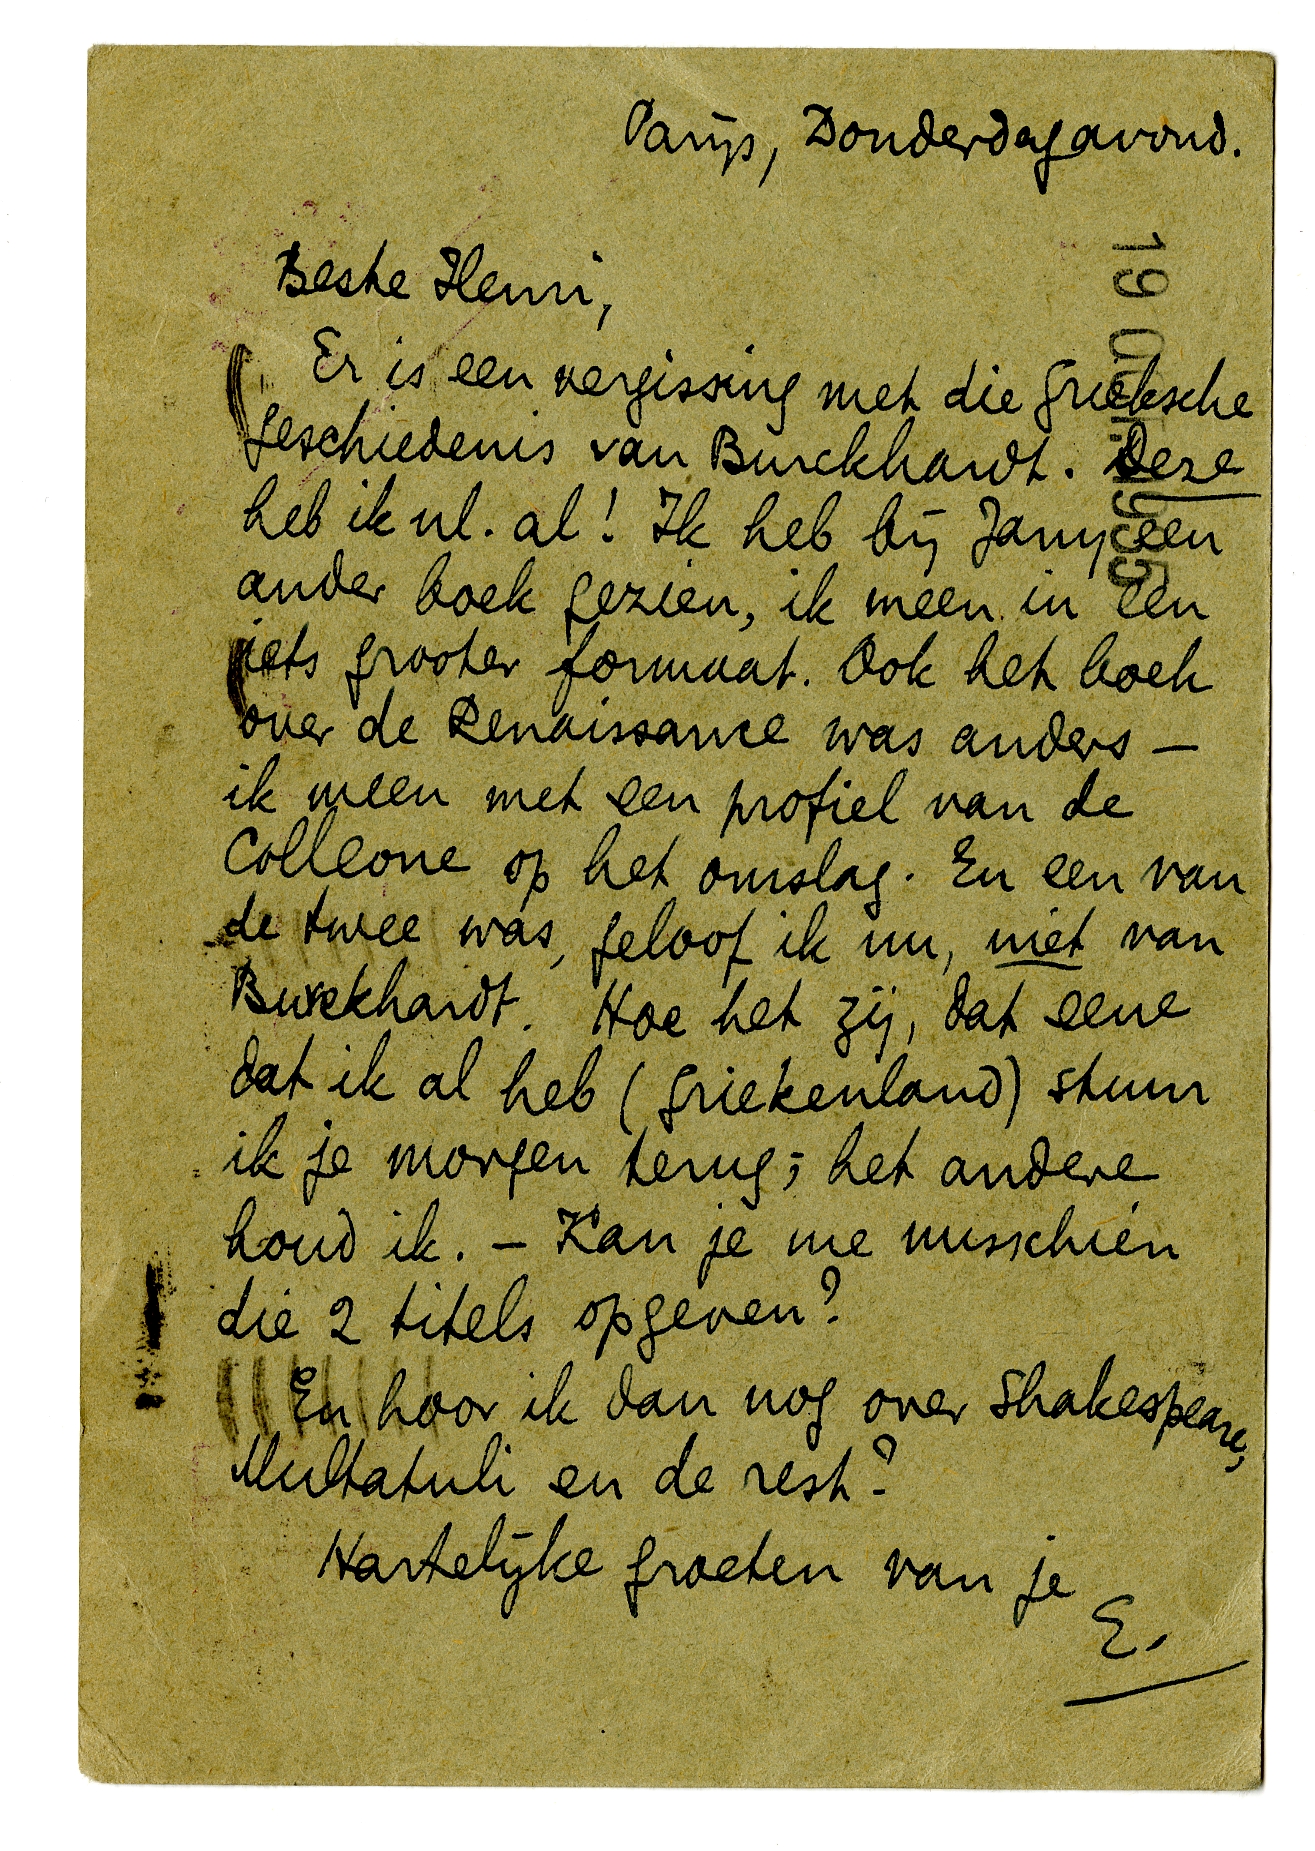 Parijs, Donderdagavond.
Beste Henri,
Er is een vergissing met die Grieksche
geschiedenis van Burckhardt. Deze
heb ik nl. al! Ik heb bij Jany een
ander boek gezien, ik meen in een
iets grooter formaat. Ook het boek
over de Renaissance was anders —
ik meen met een profiel van de
Colleone op het omslag. En een van
de twee was, geloof ik nu, niet van
Burckhardt. Hoe het zij, dat eene
dat ik al heb (Griekenland) stuur
ik je morgen terug; het andere
houd ik. — Kan je me misschien
die 2 titels opgeven?
En hoor ik dan nog over Shakespeare,
Multatuli en de rest?
Hartelijke groeten van je
E.
19 1935